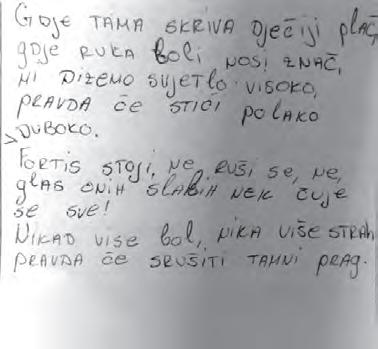 GDJE TAMA SKRIVA DJEČIJI PLAČ,
GDJE RUKA BOLI NOSI ZNAČ,
MI DIŽEMO SVJETLO VISOKO,
PRAVDA ČE STIČI POLAKO
> DUBOKO.
FORTIS STOJI, NE RUŠI SE, NE,
GLAS ONIH SLABIH NEK ČUJE
SE SVE!
NIKAD VIŠE BOL, NIKA VIŠE STRAH
PRAVDA ČE SRUŠITI TAMNI PRAG.